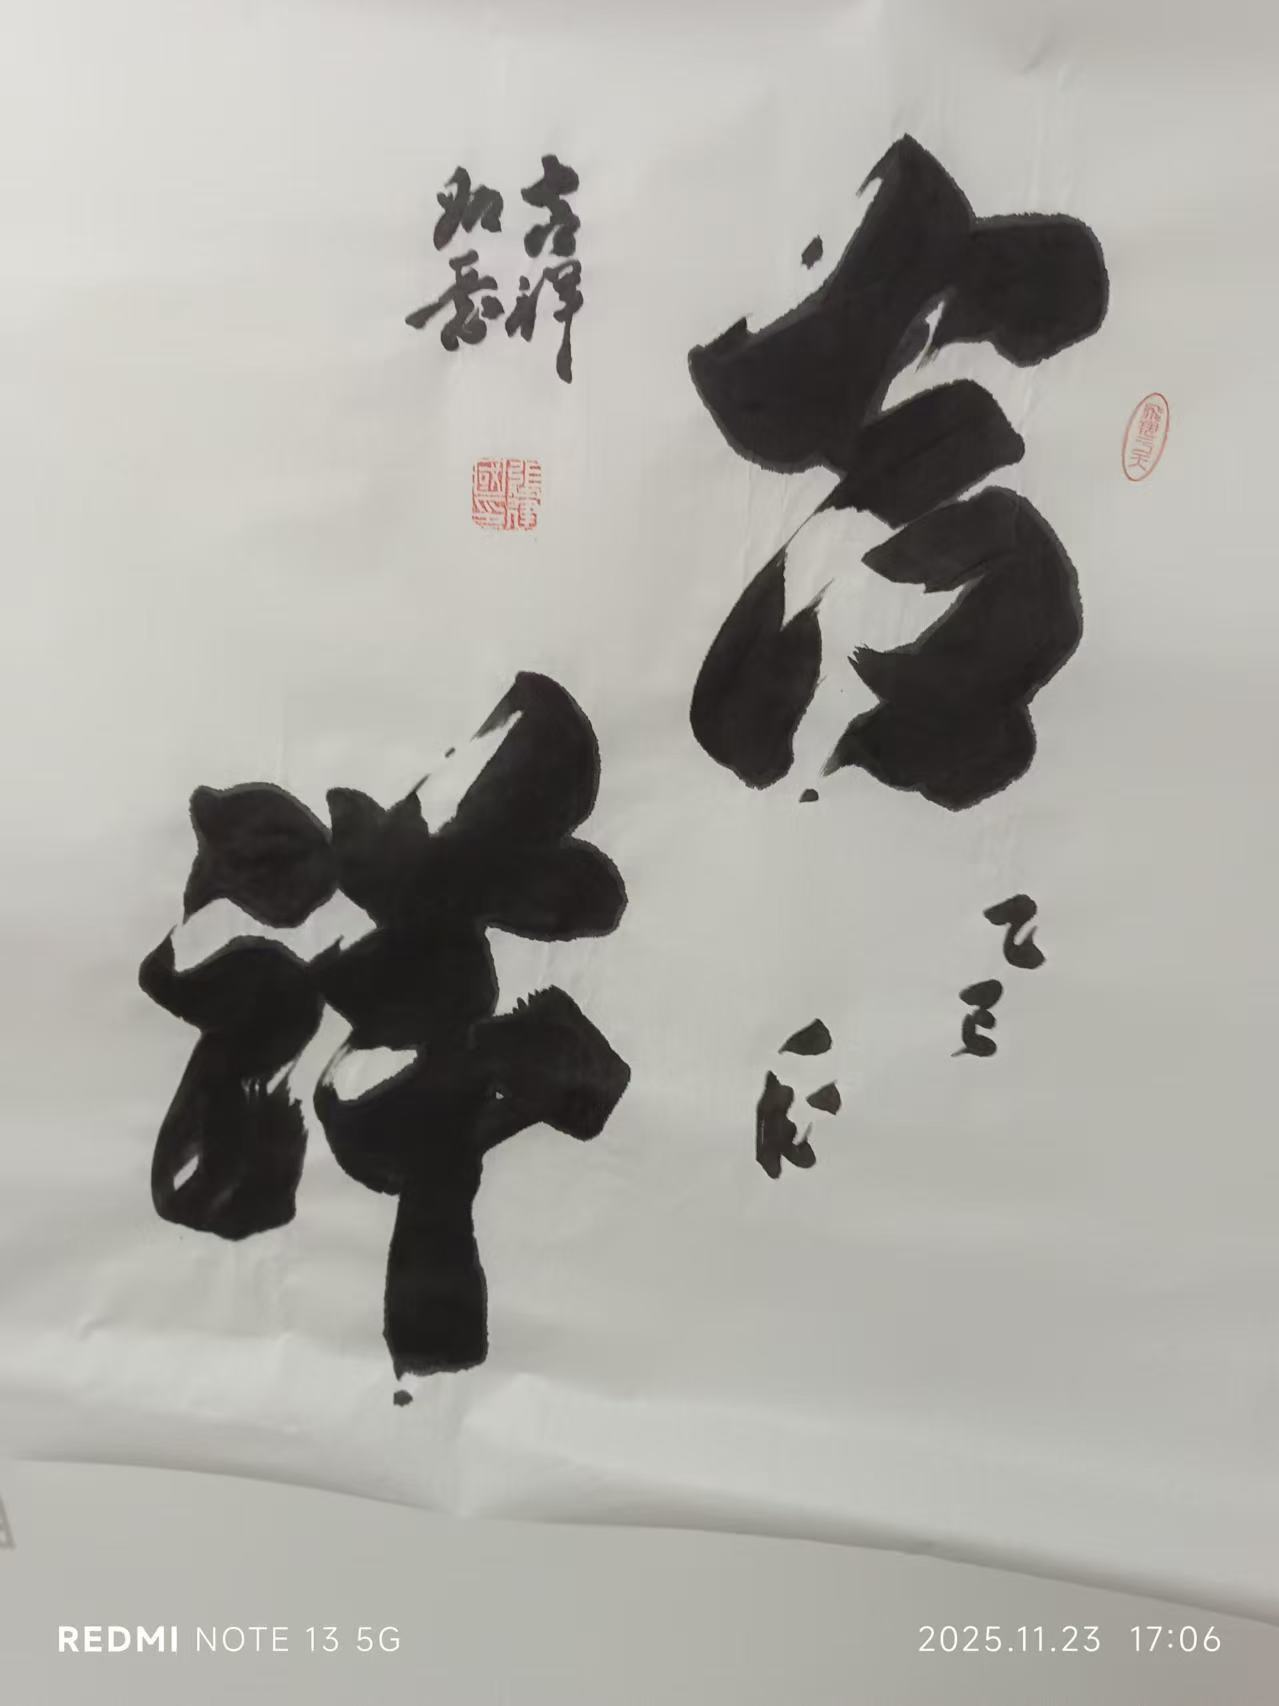 吉
祥
吉祥
如意
乙巳
REDMI NOTE 13 5G
2025.11.23 17:06